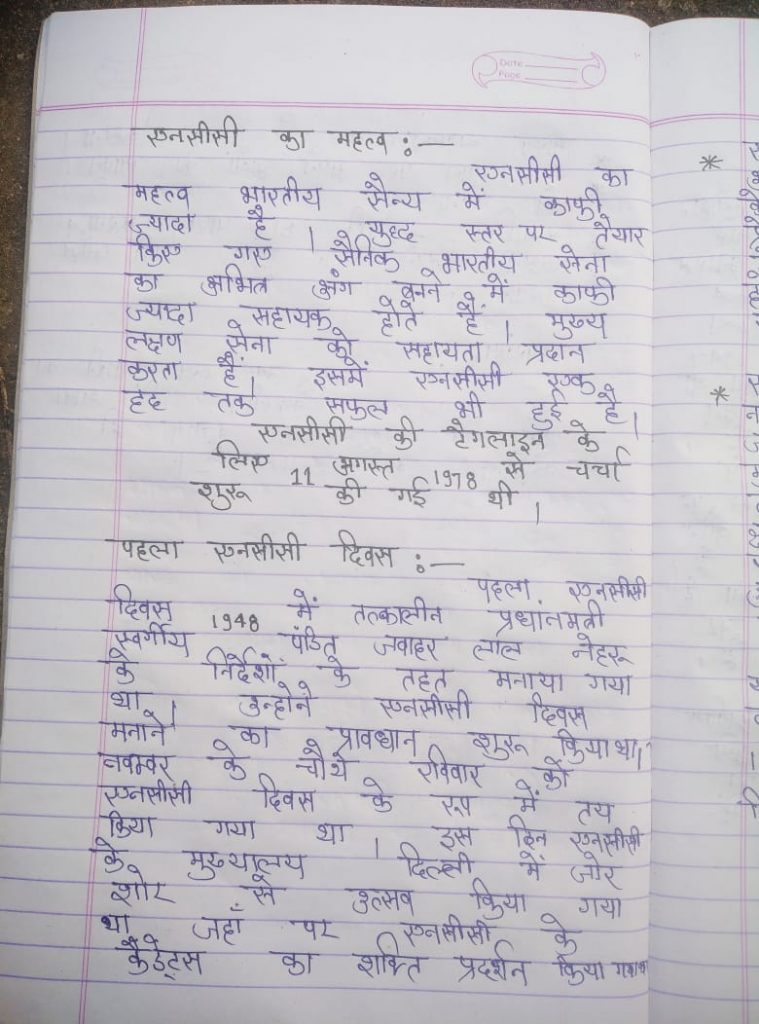 Date
Page
एनसीसी का महत्व :—
एनसीसी का
महत्व भारतीय सैन्य में काफी
ज्यादा है । युद्ध स्तर पर तैयार
किए गए सैनिक भारतीय सेना
का अभिन्न अंग बनने में काफी
ज्यादा सहायक होते हैं । मुख्य
लक्षण सेना को सहायता प्रदान
करता हैं । इसमें एनसीसी एक
हद तक सफल भी हुई है ।
एनसीसी की टैगलाइन के
लिए 11 अगस्त 1978 से चर्चा
शुरू की गई थी ।
पहला एनसीसी दिवस :—
पहला एनसीसी
दिवस 1948 में तत्कालीन प्रधानमंत्री
स्वर्गीय पंडित जवाहर लाल नेहरू
के निर्देशों के तहत मनाया गया
था । उन्होंने एनसीसी दिवस
मनाने का प्रावधान शुरू किया था।
नवम्बर के चौथे रविवार को
एनसीसी दिवस के रूप में तय
किया गया था । इस दिन एनसीसी
के मुख्यालय दिल्ली में जोर
शोर से उत्सव किया गया
था जहाँ पर एनसीसी के
कैडेट्स का शक्ति प्रदर्शन किया गया था
*
*